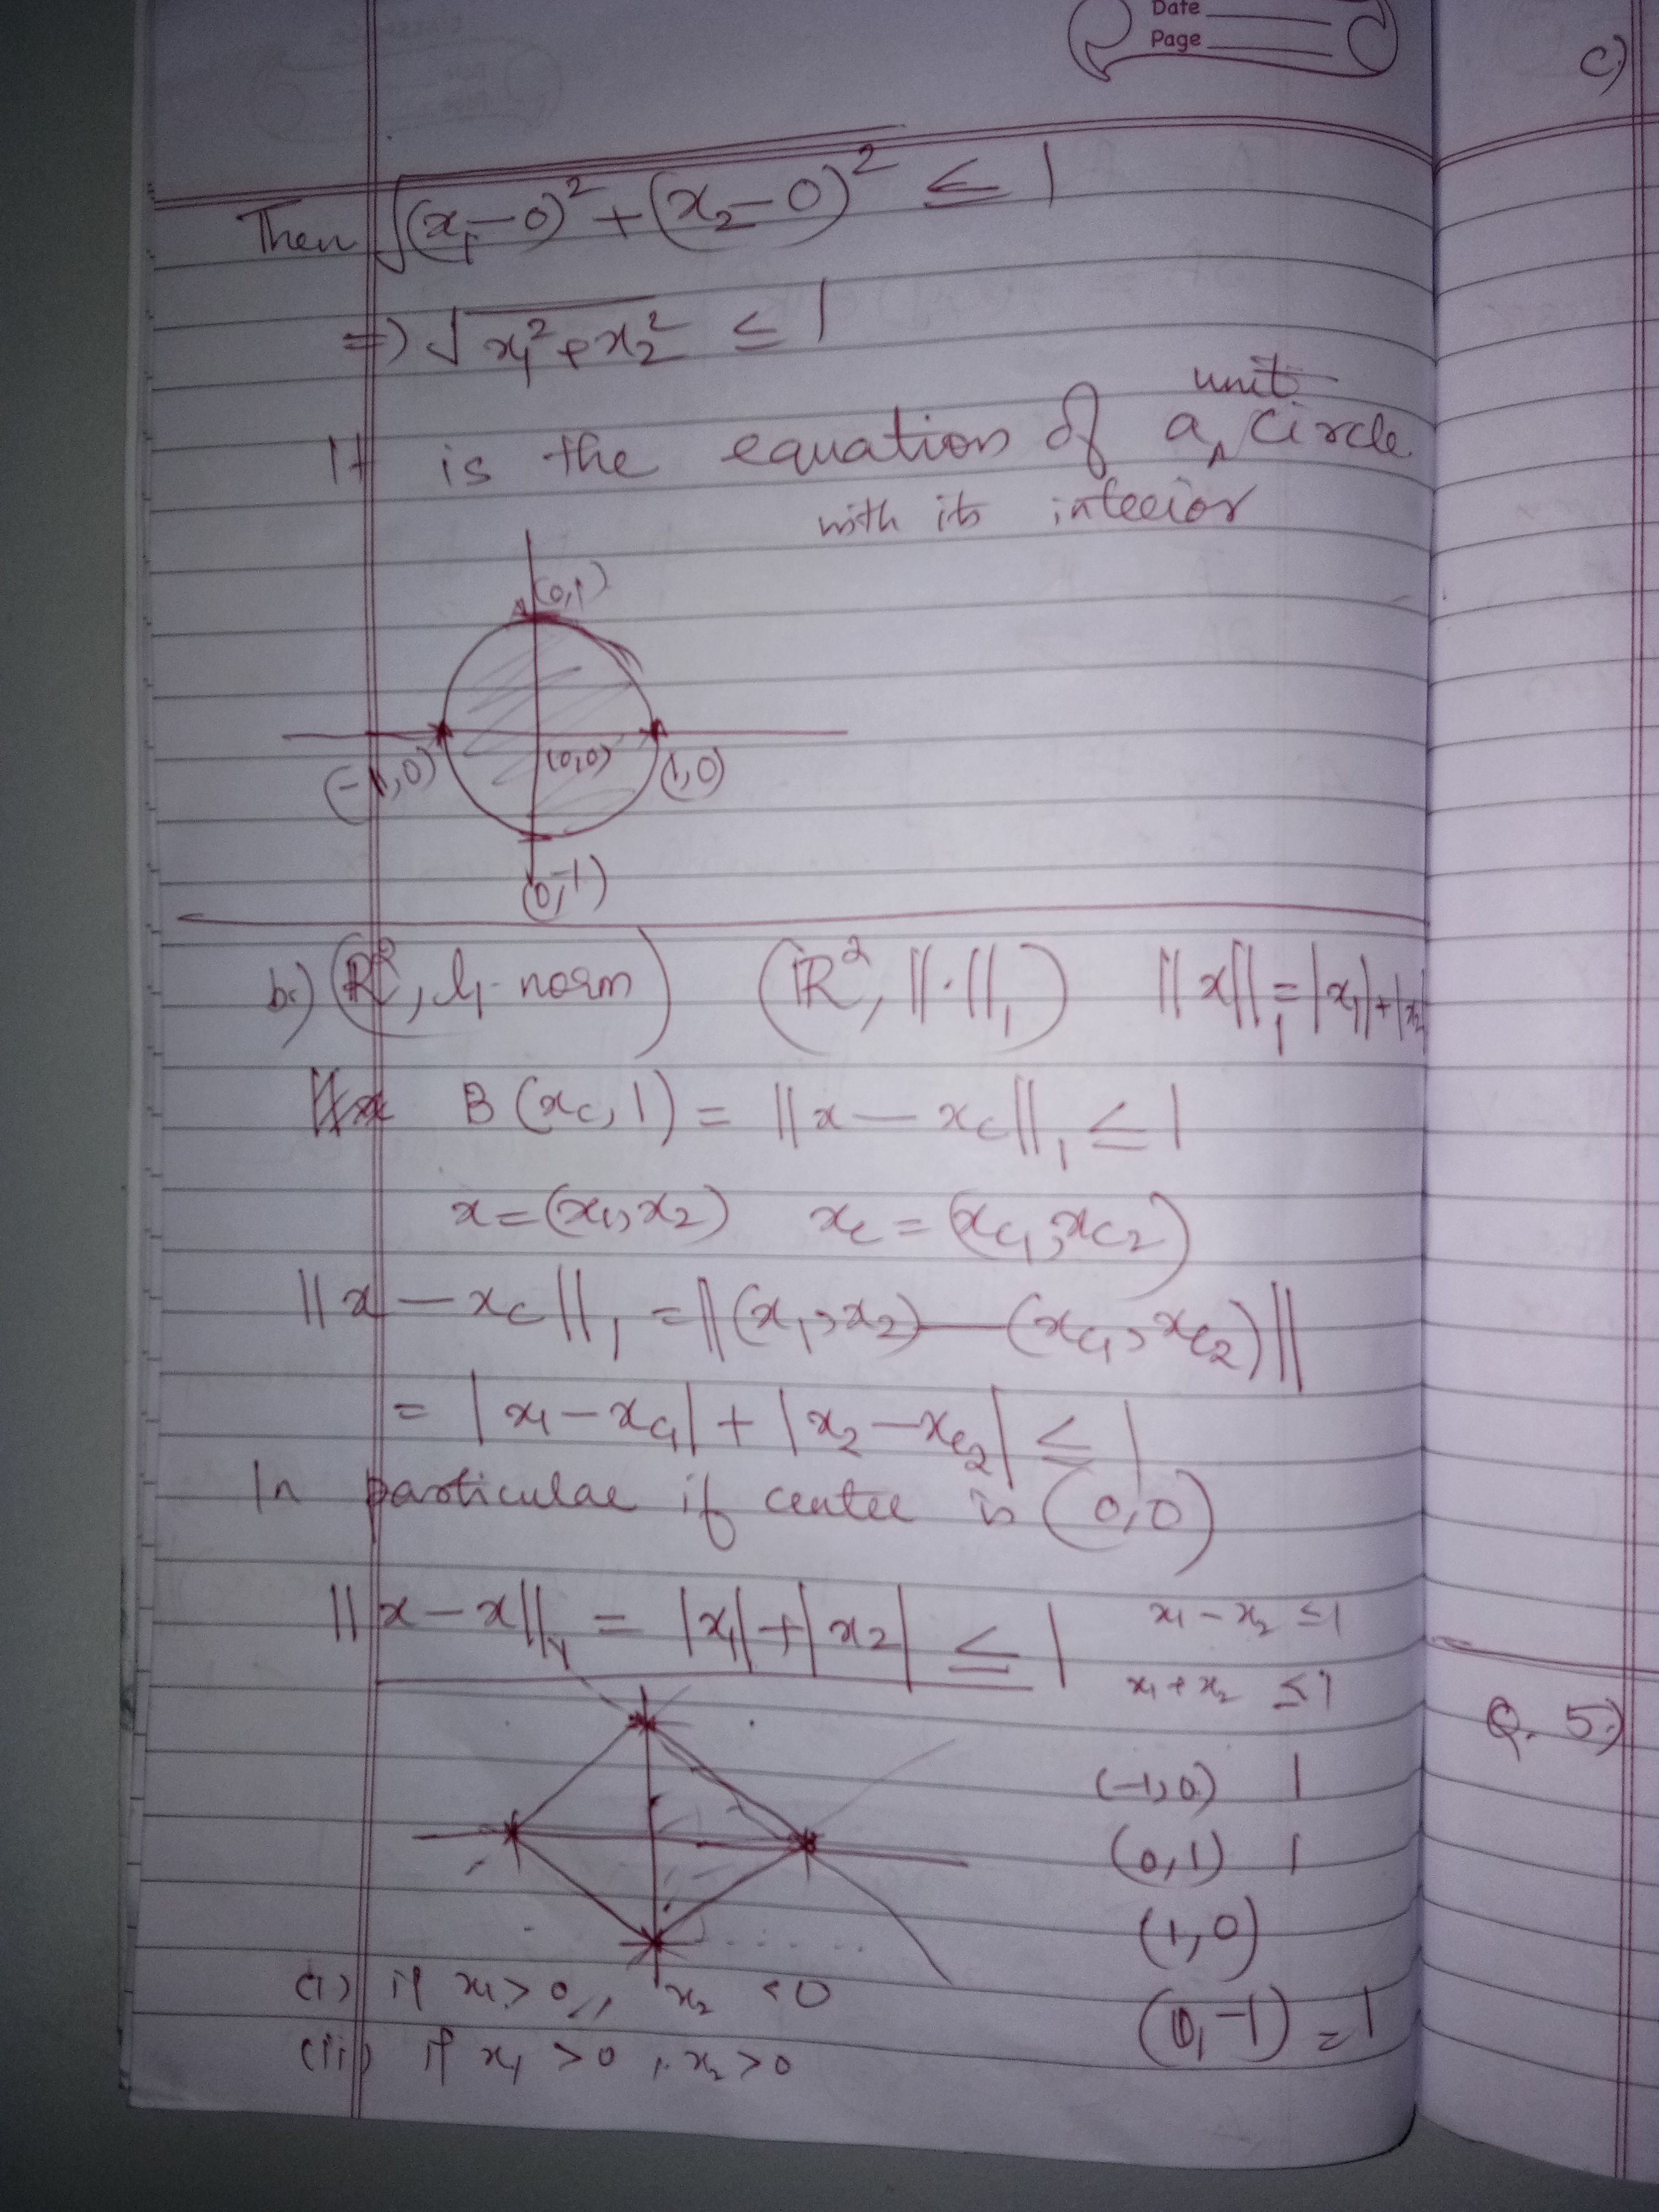 Date
Page
c)
Then √(x₁-0)² + (x₂-0)² ≤ 1
⇒ √x₁² + x₂² ≤ 1
It is the equation of a unit circle
with its interior
(0,1)
(-1,0) (0,0) (1,0)
(0,-1)
b.) (ℝ², l₁-norm) (ℝ², ||·||₁) ||x||₁ = |x₁| + |x₂|
B(x_c, 1) = ||x - x_c||₁ ≤ 1
x = (x₁, x₂) x_c = (x_c₁, x_c₂)
||x - x_c||₁ = ||(x₁, x₂) - (x_c₁, x_c₂)||
= |x₁ - x_c₁| + |x₂ - x_c₂| ≤ 1
In particular if center is (0,0)
||x - x||₁ = |x₁| + |x₂| ≤ 1 x₁ - x₂ ≤ 1
x₁ + x₂ ≤ 1
Q. 5.)
(-1,0) 1
(0,1) 1
(1,0)
(i) if x₁ > 0, x₂ < 0
(0,-1) = 1
(ii) if x₁ > 0, x₂ > 0